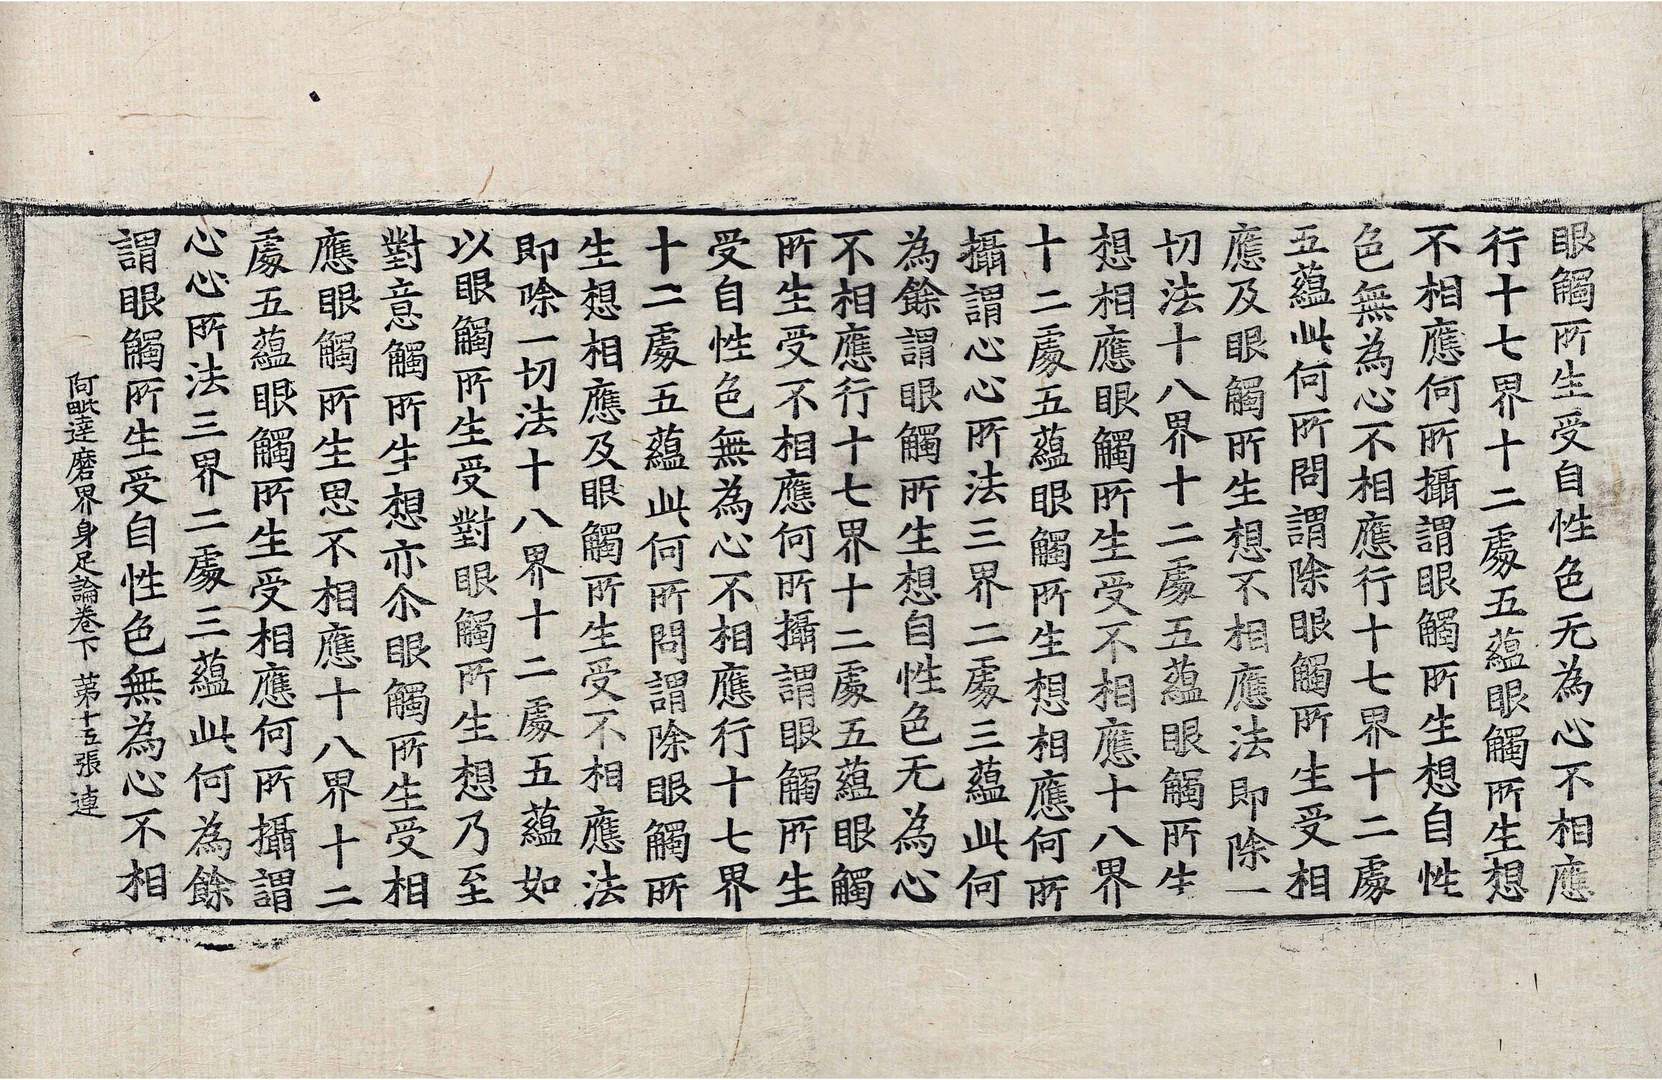 眼觸所生受自性色无為心不相應
行十七界十二處五蘊眼觸所生想
不相應何所攝謂眼觸所生想自性
色無為心不相應行十七界十二處
五蘊此何所問謂除眼觸所生受相
應及眼觸所生想不相應法即除一
切法十八界十二處五蘊眼觸所生
想相應眼觸所生受不相應十八界
十二處五蘊眼觸所生想相應何所
攝謂心心所法三界二處三蘊此何
為餘謂眼觸所生想自性色无為心
不相應行十七界十二處五蘊眼觸
所生受不相應何所攝謂眼觸所生
受自性色無為心不相應行十七界
十二處五蘊此何所問謂除眼觸所
生想相應及眼觸所生受不相應法
即除一切法十八界十二處五蘊如
以眼觸所生受對眼觸所生想乃至
對意觸所生想亦尒眼觸所生受相
應眼觸所生思不相應十八界十二
處五蘊眼觸所生受相應何所攝謂
心心所法三界二處三蘊此何為餘
謂眼觸所生受自性色無為心不相
阿毗達磨界身足論卷下 第十五張 連